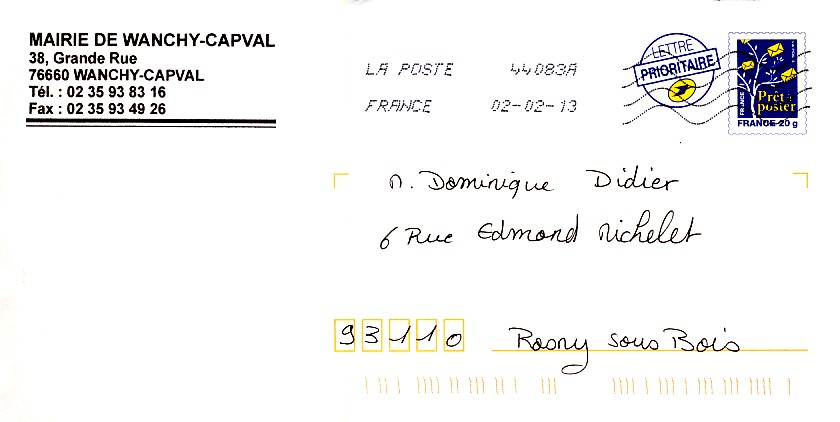 MAIRIE DE WANCHY-CAPVAL
38, Grande Rue
76660 WANCHY-CAPVAL
Tél. : 02 35 93 83 16
Fax : 02 35 93 49 26
LA POSTE 44083A
FRANCE 02-02-13
LETTRE
PRIORITAIRE
FRANCE
Prêt à
poster
FRANCE 20 g
M. Dominique Didier
6 Rue Edmond Michelet
93110 Rosny sous Bois